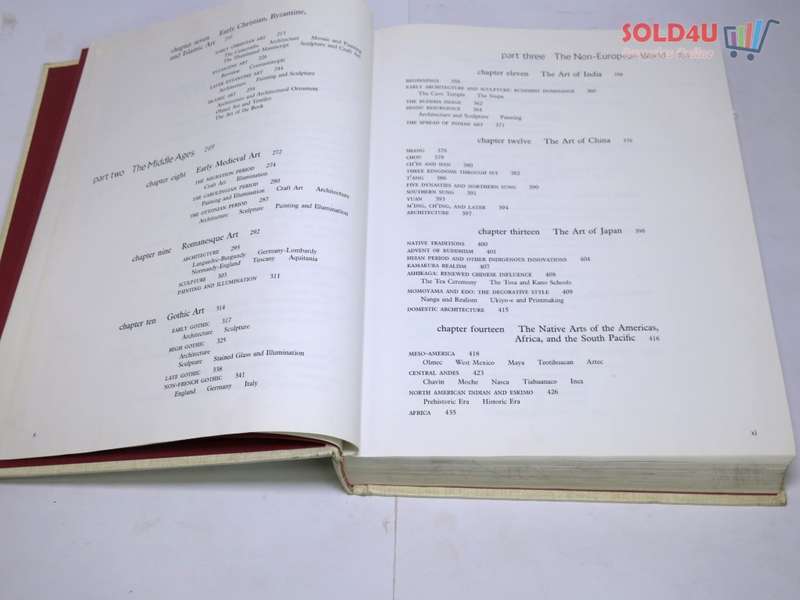 chapter seven Early Christian, Byzantine,
and Islamic Art 210
EARLY CHRISTIAN ART 213
The Catacombs Architecture Mosaic and Painting
The Illuminated Manuscript Sculpture and Craft Art
BYZANTINE ART 226
Ravenna Constantinople
LATER BYZANTINE ART 244
Architecture Painting and Sculpture
ISLAMIC ART 256
Architecture and Architectural Ornament
Object Art and Textiles
The Art of the Book
part two The Middle Ages
chapter eight Early Medieval Art 272
THE MIGRATION PERIOD 274
Craft Art Illumination
THE CAROLINGIAN PERIOD 280
Painting and Illumination Craft Art Architecture
THE OTTONIAN PERIOD 285
Architecture Sculpture Painting and Illumination
chapter nine Romanesque Art 292
ARCHITECTURE 295
Languedoc-Burgundy Germany-Lombardy
Normandy-England Tuscany Aquitania
SCULPTURE 305
PAINTING AND ILLUMINATION 311
chapter ten Gothic Art 314
EARLY GOTHIC 317
Architecture Sculpture
HIGH GOTHIC 325
Architecture
Sculpture Stained Glass and Illumination
LATE GOTHIC 338
NON-FRENCH GOTHIC 341
England Germany Italy
x
SOLD4U
part three The Non-European World
chapter eleven The Art of India 354
BEGINNINGS 356
EARLY ARCHITECTURE AND SCULPTURE: BUDDHIST DOMINANCE 360
The Cave Temple The Stupa
THE BUDDHA IMAGE 362
HINDU RESURGENCE 364
Architecture and Sculpture Painting
THE SPREAD OF INDIAN ART 371
chapter twelve The Art of China 376
SHANG 378
CHOU 379
CH'IN AND HAN 380
THREE KINGDOMS THROUGH SUI 382
T'ANG 386
FIVE DYNASTIES AND NORTHERN SUNG 390
SOUTHERN SUNG 391
YUAN 393
MING, CH'ING, AND LATER 394
ARCHITECTURE 397
chapter thirteen The Art of Japan 398
NATIVE TRADITIONS 400
ADVENT OF BUDDHISM 401
HEIAN PERIOD AND OTHER INDIGENOUS INNOVATIONS 404
KAMAKURA REALISM 407
ASHIKAGA: RENEWED CHINESE INFLUENCE 408
The Tea Ceremony The Tosa and Kano Schools
MOMOYAMA AND EDO: THE DECORATIVE STYLE 409
Nanga and Realism Ukiyo-e and Printmaking
DOMESTIC ARCHITECTURE 415
chapter fourteen The Native Arts of the Americas,
Africa, and the South Pacific 416
MESO-AMERICA 418
Olmec West Mexico Maya Teotihuacan Aztec
CENTRAL ANDES 423
Chavin Moche Nasca Tiahuanaco Inca
NORTH AMERICAN INDIAN AND ESKIMO 426
Prehistoric Era Historic Era
AFRICA 435
xi